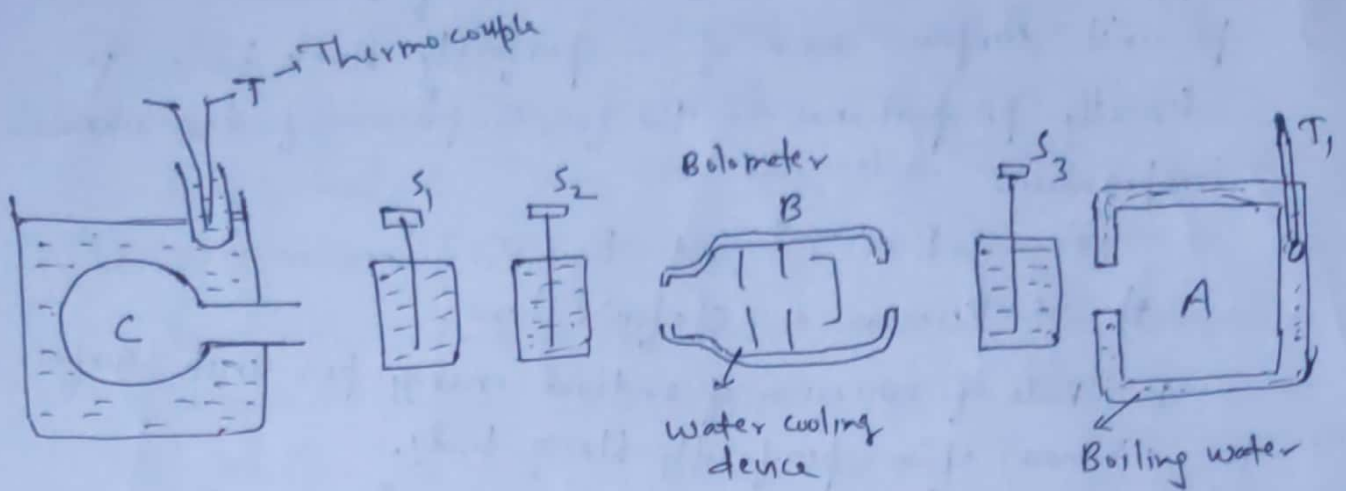 T → Thermocouple
S1
S2
Bolometer
B
S3
T1
C
A
Water cooling
device
Boiling water